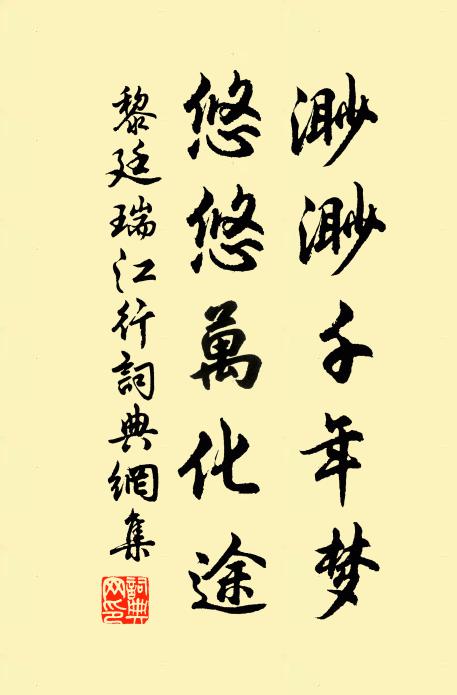 渺渺千年梦
悠悠萬化途
黎廷瑞江行詞典網集
詞典网印